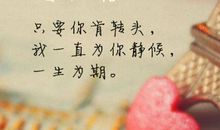 只要你肯转头，
我一直为你静候，
一生为期。